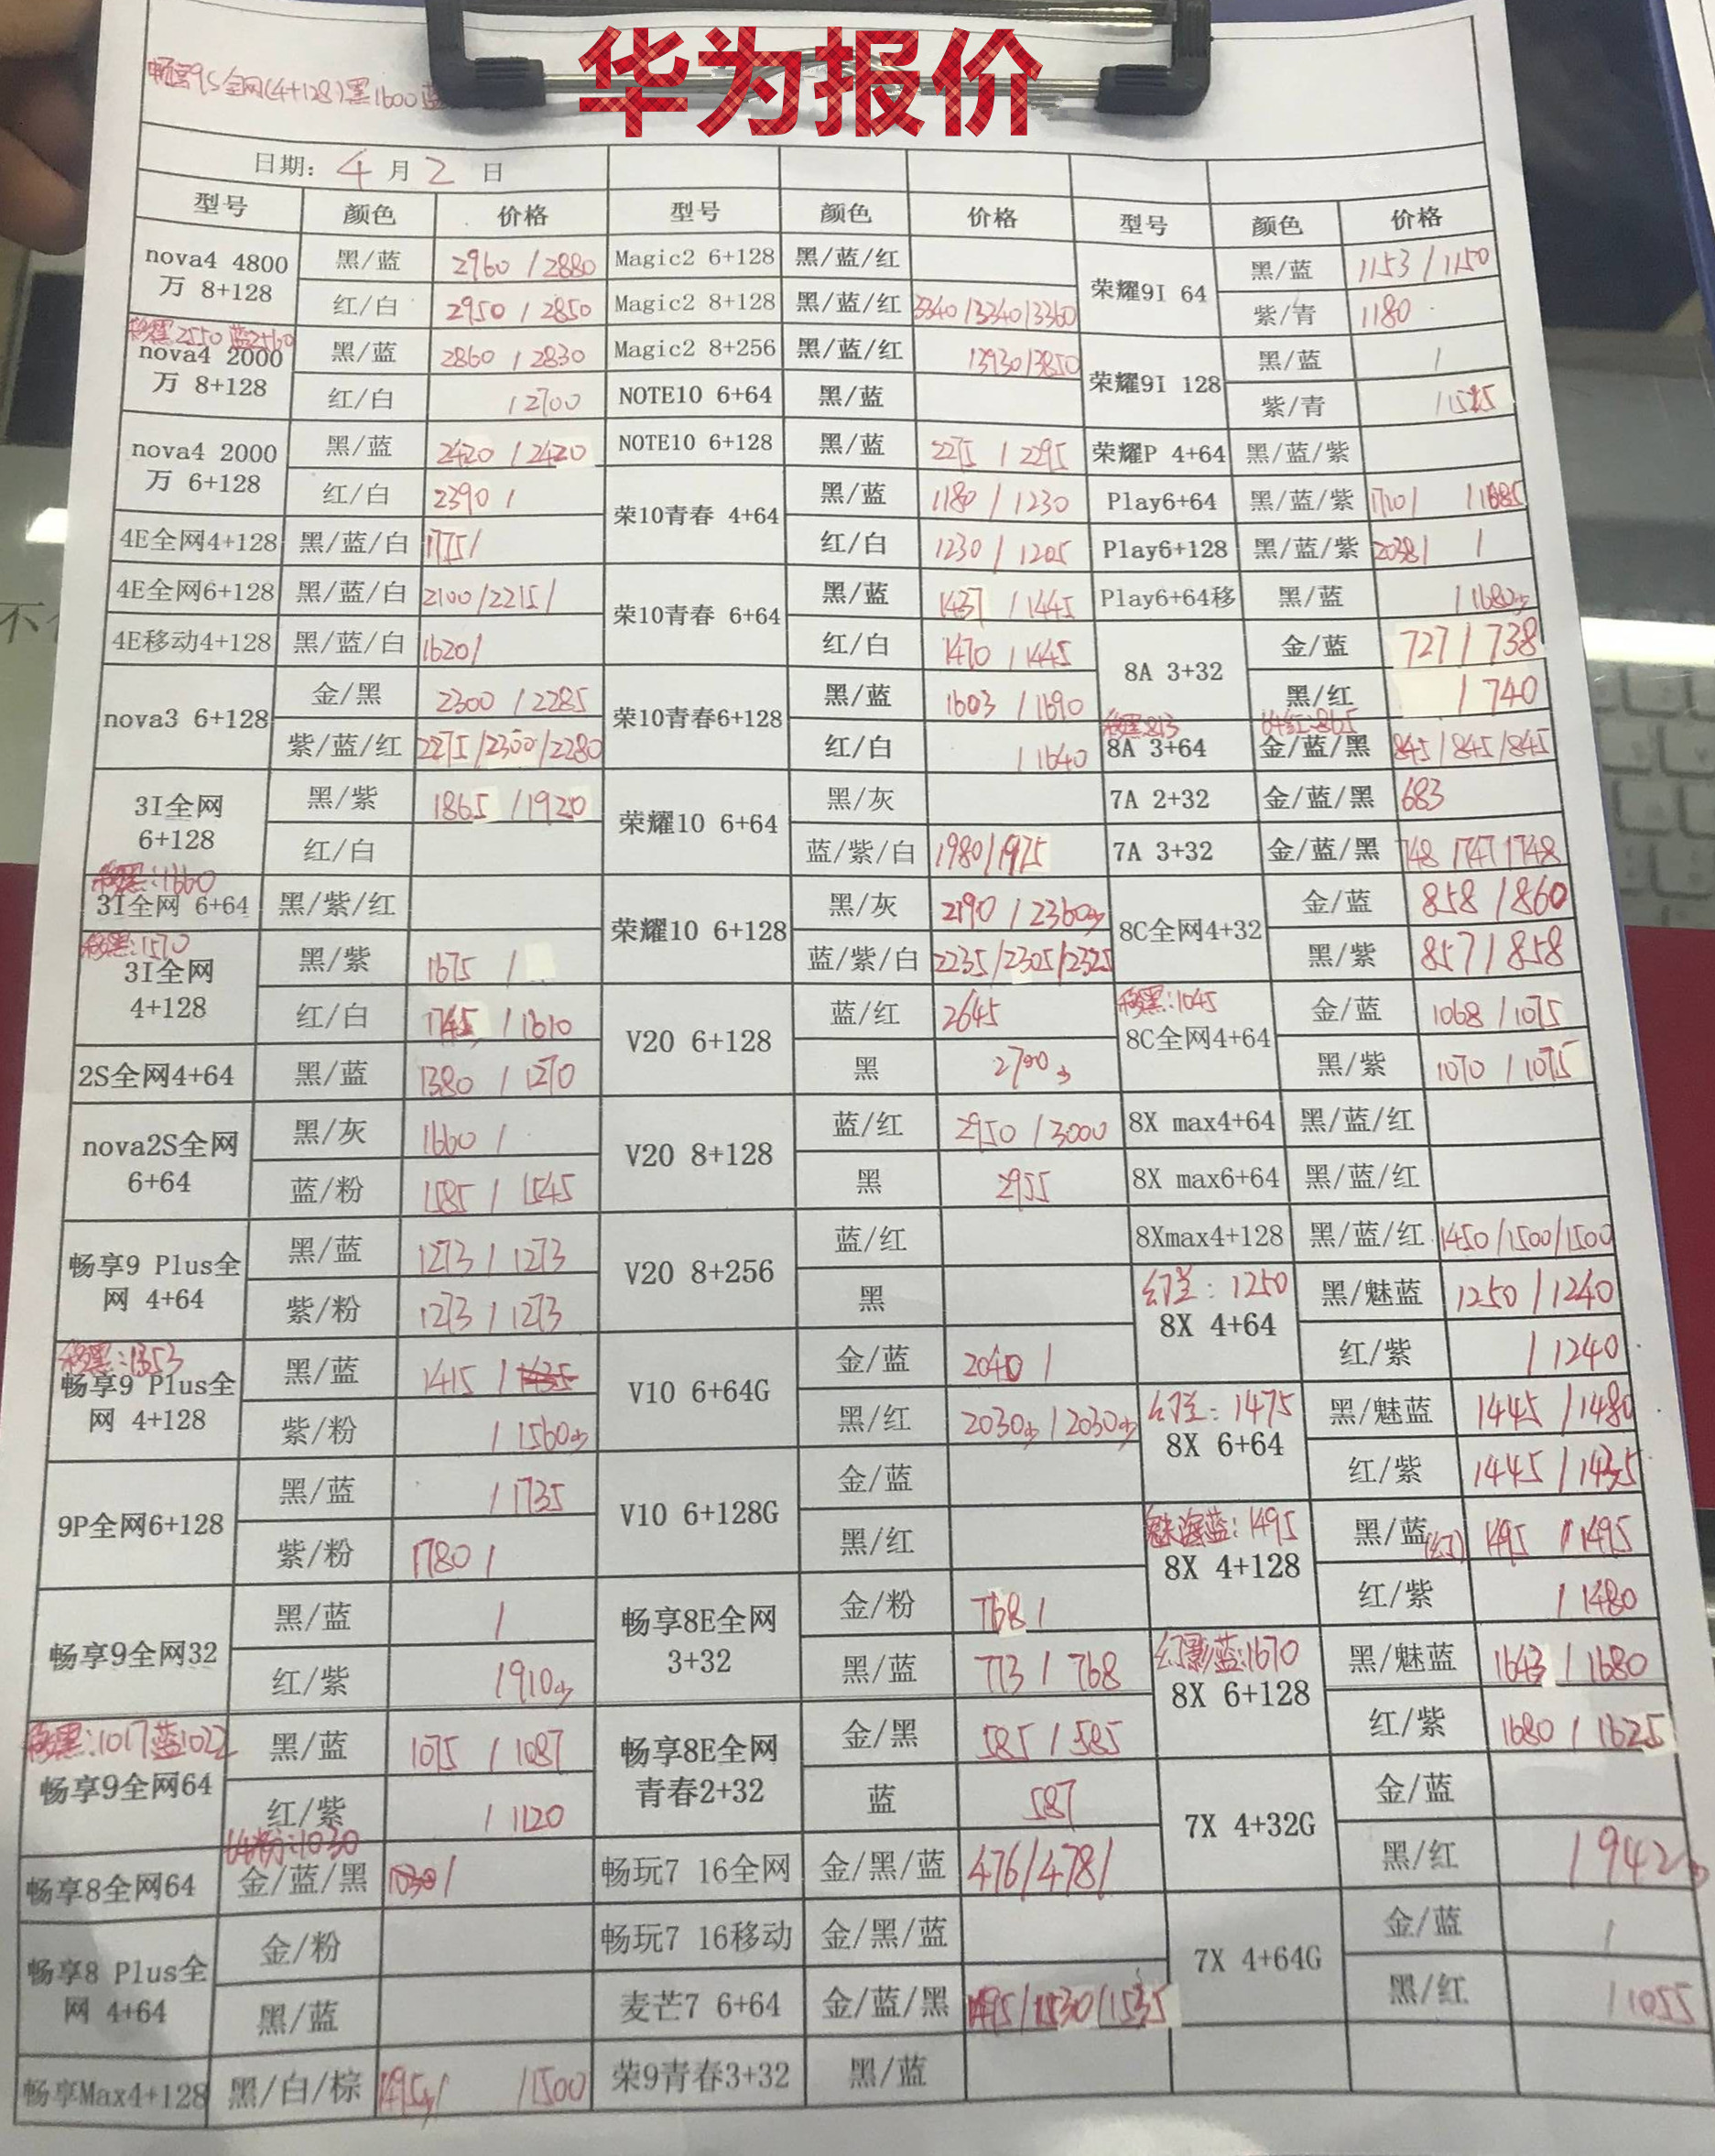 华为报价
畅享9S全网(4+128)黑1600蓝
日期: 4月2日
型号 颜色 价格 型号 颜色 价格 型号 颜色 价格
nova4 4800万 8+128 黑/蓝 2960/2880
红/白 2950/2850
移黑2550 蓝2560
nova4 2000万 8+128 黑/蓝 2860/2830
红/白 /2700
nova4 2000万 6+128 黑/蓝 2420/2420
红/白 2390/
4E全网4+128 黑/蓝/白 1775/
4E全网6+128 黑/蓝/白 2100/2215/
4E移动4+128 黑/蓝/白 1620/
nova3 6+128 金/黑 2300/2285
紫/蓝/红 2275/2300/2280
3I全网 6+128 黑/紫 1865/1920
红/白
移黑:1660
3I全网 6+64 黑/紫/红
移黑:1570
3I全网 4+128 黑/紫 1675/
红/白 1745/1610
2S全网4+64 黑/蓝 1380/1270
nova2S全网 6+64 黑/灰 1660/
蓝/粉 1585/1545
畅享9 Plus全网 4+64 黑/蓝 1273/1273
紫/粉 1273/1273
移黑:1353
畅享9 Plus全网 4+128 黑/蓝 1415/
紫/粉 /1560少
9P全网6+128 黑/蓝 /1735
紫/粉 1780/
畅享9全网32 黑/蓝 /
红/紫 /910少
移黑:1017蓝1022
畅享9全网64 黑/蓝 1075/1087
红/紫 /1120
64粉:1030
畅享8全网64 金/蓝/黑
畅享8 Plus全网 4+64 金/粉
黑/蓝
畅享Max4+128 黑/白/棕 1495少/ /1500
Magic2 6+128 黑/蓝/红
Magic2 8+128 黑/蓝/红 3340/3340/3360
Magic2 8+256 黑/蓝/红 /3930/3850
NOTE10 6+64 黑/蓝
NOTE10 6+128 黑/蓝 2275/2295
荣10青春 4+64 黑/蓝 1180/1230
红/白 1230/1205
荣10青春 6+64 黑/蓝 1437/1445
红/白 1470/1445
荣10青春6+128 黑/蓝 1603/1690
红/白 /1640
荣耀10 6+64 黑/灰
蓝/紫/白 1980/1975
荣耀10 6+128 黑/灰 2190/2360少
蓝/紫/白 2235/2305/2325
V20 6+128 蓝/红 2645
黑 2790少
V20 8+128 蓝/红 2950/3000
黑 2955
V20 8+256 蓝/红
黑
V10 6+64G 金/蓝 2040/
黑/红 2030少/2030少
V10 6+128G 金/蓝
黑/红
畅享8E全网 3+32 金/粉 768/
黑/蓝 773/768
畅享8E全网青春2+32 金/黑 585/585
蓝 587
畅玩7 16全网 金/黑/蓝 476/478/
畅玩7 16移动 金/黑/蓝
麦芒7 6+64 金/蓝/黑 1495/1530/1535
荣9青春3+32 黑/蓝
荣耀9I 64 黑/蓝 1153/1150
紫/青 1180
荣耀9I 128 黑/蓝 /
紫/青
荣耀P 4+64 黑/蓝/紫
Play6+64 黑/蓝/紫 1710/ /1685
Play6+128 黑/蓝/紫 2038/ /
Play6+64移 黑/蓝 /1680少
8A 3+32 金/蓝 727/738
黑/红 /740
移黑:813 64红:865
8A 3+64 金/蓝/黑 845/845/845
7A 2+32 金/蓝/黑 683
7A 3+32 金/蓝/黑 748/747/748
8C全网4+32 金/蓝 858/860
黑/紫 857/858
移黑:1045
8C全网4+64 金/蓝 1068/1075
黑/紫 1070/1075
8X max4+64 黑/蓝/红
8X max6+64 黑/蓝/红
8Xmax4+128 黑/蓝/红 1450/1500/1500
幻兰: 1250
8X 4+64 黑/魅蓝 1250/1240
红/紫 /1240
幻兰: 1475
8X 6+64 黑/魅蓝 1445/1480
红/紫 1445/1435
魅海蓝: 1495
8X 4+128 黑/蓝(幻) 1495/1495
红/紫 /1480
幻影蓝:1670
8X 6+128 黑/魅蓝 1643/1680
红/紫 1680/1625
7X 4+32G 金/蓝
黑/红 /942少
7X 4+64G 金/蓝 /
黑/红 /1055